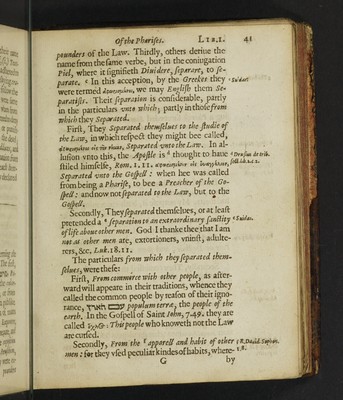 Of the Pharises. LIB.I. 41
pounders of the Law. Thirdly, others deriue the
name from the same verbe, but in the coniugation
Piel, where it signifieth Diuidere, separare, to se-
parate. In this acception, by the Greekes they
were termed we may English them Se-
paratists. Their separation is considerable, partly
in the particulars vnto which; partly in those from
which they Separated.
First, They Separated themselues to the studie of
the Law, in which respect they might bee called,
Separated vnto the Law. In al-
lusion vnto this, the Apostle is thought to haue
stiled himselfe, Rom. 1.11.
Separated vnto the Gospell: when hee was called
from being a Pharise, to bee a Preacher of the Go-
spell: and now not separated to the Law, but to the
Gospell.
Secondly, They separated themselues, or at least
pretended a separation to an extraordinary sanctity
of life aboue other men. God I thanke thee that I am
not as other men are, extortioners, vniust, adulte-
rers, &c. Luk. 18.11.
The particulars from which they separated them-
selues, were these:
First, From commerce with other people, as after-
ward will appeare in their traditions, whence they
called the common people by reason of their igno-
rance, עם הארץ populum terræ, the people of the
earth. In the Gospell of Saint Iohn, 7.49. they are
called This people who knoweth not the Law
are cursed.
Secondly, From the apparell and habit of other
men: for they vsed peculiar kindes of habits, where-
G by
Suidas.
Drusius de trib.
Suidas.
R. David. Sophon.
1.8.